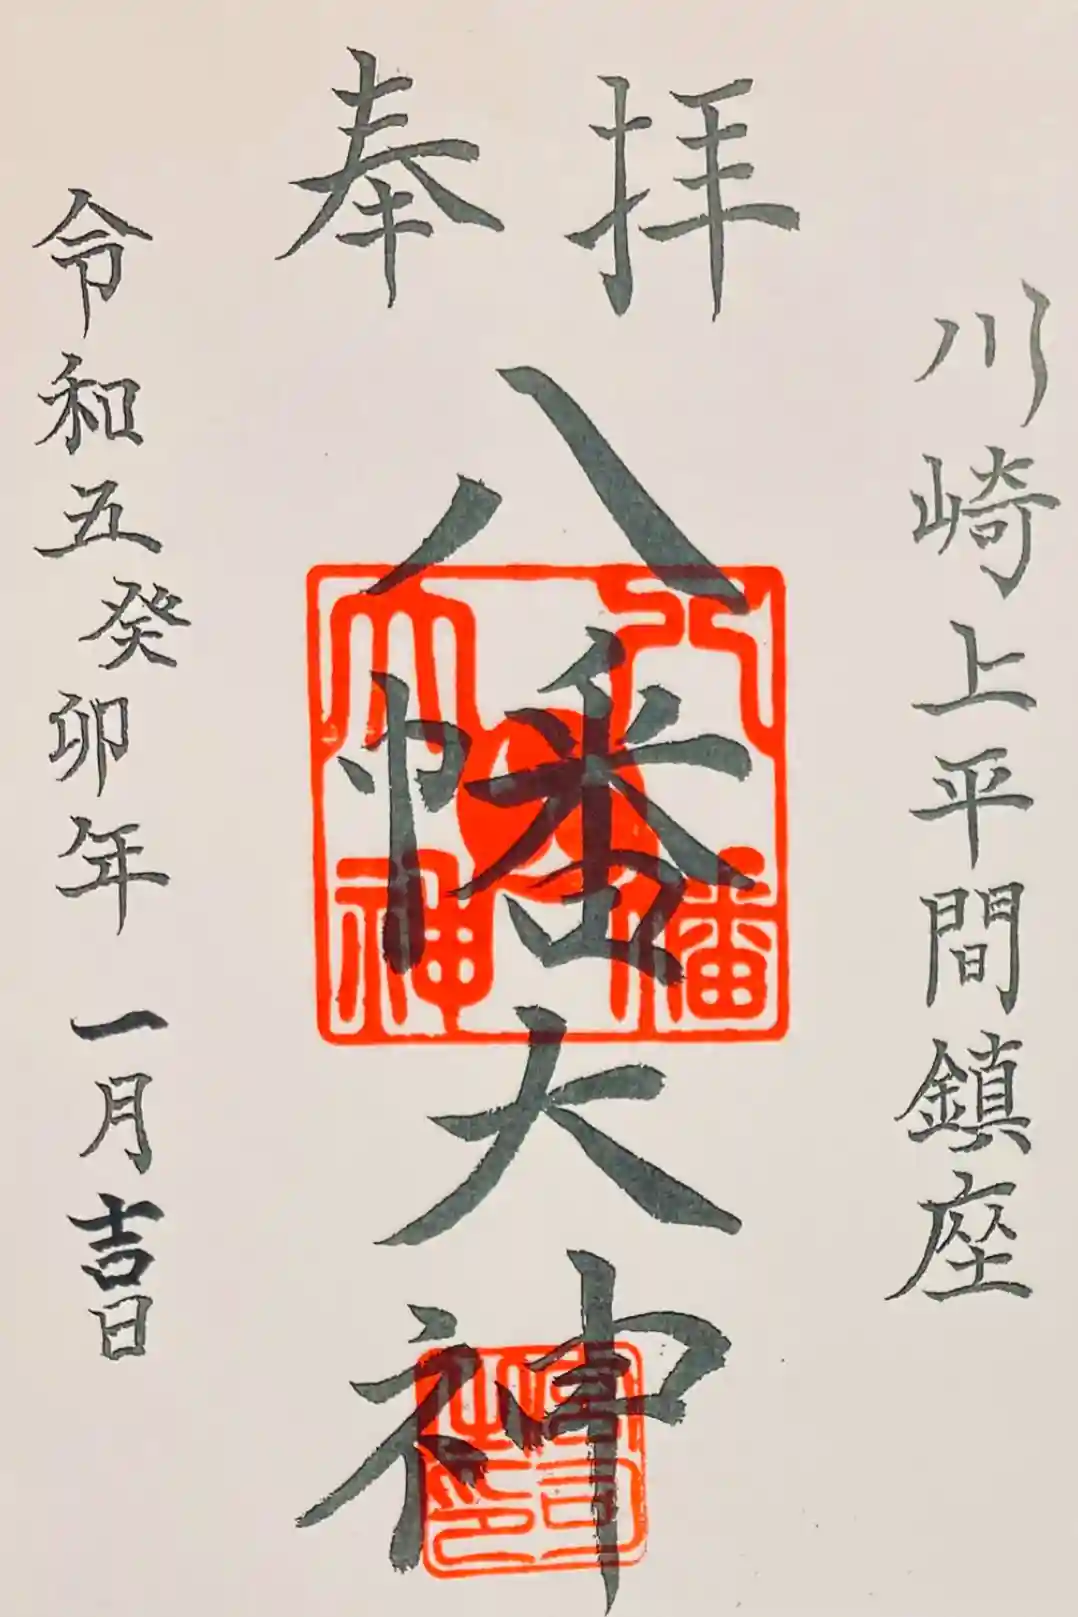 川崎上平間鎮座
奉拝
八幡大神
八幡
大神
宮司
之印
令和五癸卯年一月吉日